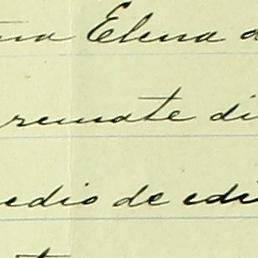 Elena
remate di
edio de edi